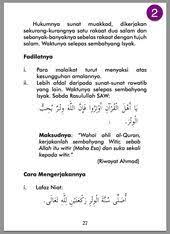 2
Hukumnya sunat muakkad, dikerjakan
sekurang-kurangnya satu rakaat dua salam dan
sebanyak-banyaknya sebelas rakaat dengan tujuh
salam. Waktunya selepas sembahyang Isyak.
Fadilatnya
i. Para malaikat turut menyaksi atas
kesungguhan amalannya.
ii. Lebih afdal daripada sunat-sunat rawatib
yang lain. Waktunya selepas sembahyang
Isyak. Sabda Rasulullah SAW:
يَا أَهْلَ الْقُرْآنِ أَوْتِرُوا فَإِنَّ اللهَ وِتْرٌ يُحِبُّ
الْوِتْرَ.
Maksudnya: "Wahai ahli al-Quran,
kerjakanlah sembahyang Witir, sebab
Allah itu witir (Maha Esa) dan suka sekali
kepada witir."
(Riwayat Ahmad)
Cara Mengerjakannya
i. Lafaz Niat:
أُصَلِّي سُنَّةَ الْوِتْرِ رَكْعَتَيْنِ لِلّٰهِ تَعَالَى.
27